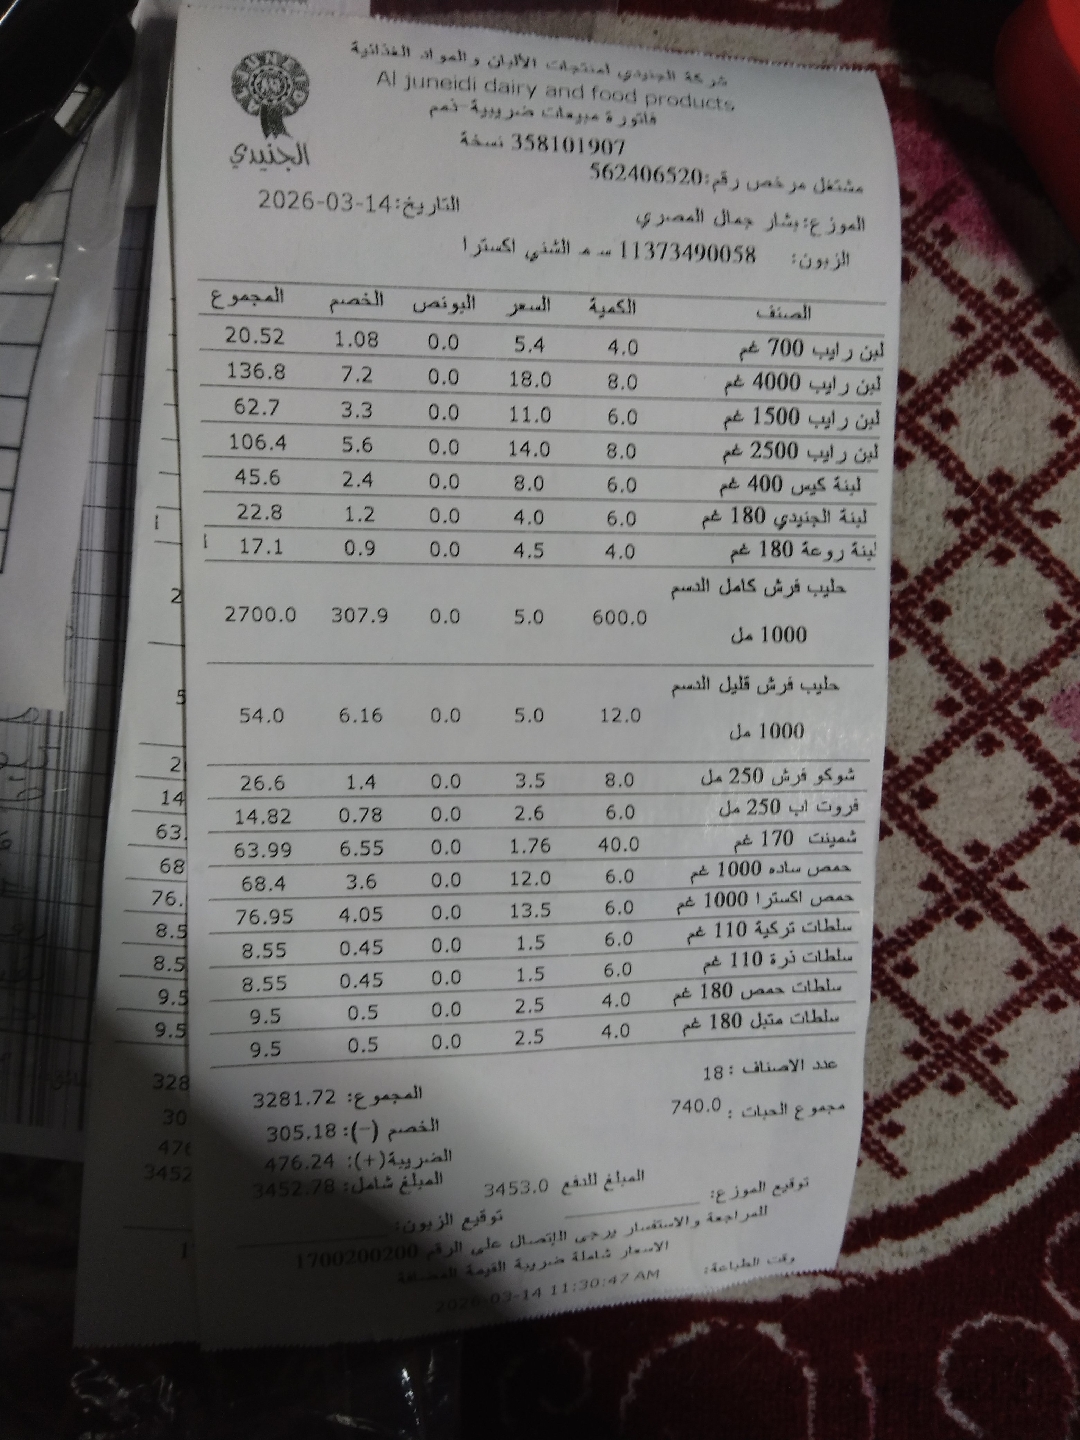 شركة الجنيدي لمنتجات الألبان والمواد الغذائية
Al juneidi dairy and food products
فاتورة مبيعات ضريبية-ذمم
358101907 نسخة
الجنيدي
مشتغل مرخص رقم:562406520
الموزع: بشار جمال المصري التاريخ:2026-03-14
الزبون: 11373490058 س م الشني اكسترا
الصنف الكمية السعر البونص الخصم المجموع
لبن رايب 700 غم 4.0 5.4 0.0 1.08 20.52
لبن رايب 4000 غم 8.0 18.0 0.0 7.2 136.8
لبن رايب 1500 غم 6.0 11.0 0.0 3.3 62.7
لبن رايب 2500 غم 8.0 14.0 0.0 5.6 106.4
لبنة كيس 400 غم 6.0 8.0 0.0 2.4 45.6
لبنة الجنيدي 180 غم 6.0 4.0 0.0 1.2 22.8
لبنة روعة 180 غم 4.0 4.5 0.0 0.9 17.1
حليب فرش كامل الدسم
1000 مل 600.0 5.0 0.0 307.9 2700.0
حليب فرش قليل الدسم
1000 مل 12.0 5.0 0.0 6.16 54.0
شوكو فرش 250 مل 8.0 3.5 0.0 1.4 26.6
فروت اب 250 مل 6.0 2.6 0.0 0.78 14.82
شمينت 170 غم 40.0 1.76 0.0 6.55 63.99
حمص ساده 1000 غم 6.0 12.0 0.0 3.6 68.4
حمص اكسترا 1000 غم 6.0 13.5 0.0 4.05 76.95
سلطات تركية 110 غم 6.0 1.5 0.0 0.45 8.55
سلطات ذرة 110 غم 6.0 1.5 0.0 0.45 8.55
سلطات حمص 180 غم 4.0 2.5 0.0 0.5 9.5
سلطات متبل 180 غم 4.0 2.5 0.0 0.5 9.5
عدد الاصناف : 18 المجموع: 3281.72
مجموع الحبات : 740.0 الخصم (-): 305.18
الضريبة(+): 476.24
المبلغ للدفع 3453.0 المبلغ شامل: 3452.78
توقيع الموزع:
توقيع الزبون:
للمراجعة والاستفسار يرجى الإتصال على الرقم 1700200200
الاسعار شاملة ضريبة القيمة المضافة
وقت الطباعة: 2026-03-14 11:30:47 AM
2
5
2
14
63.
68
76.
8.5
8.5
9.5
9.5
328
30
476
3452